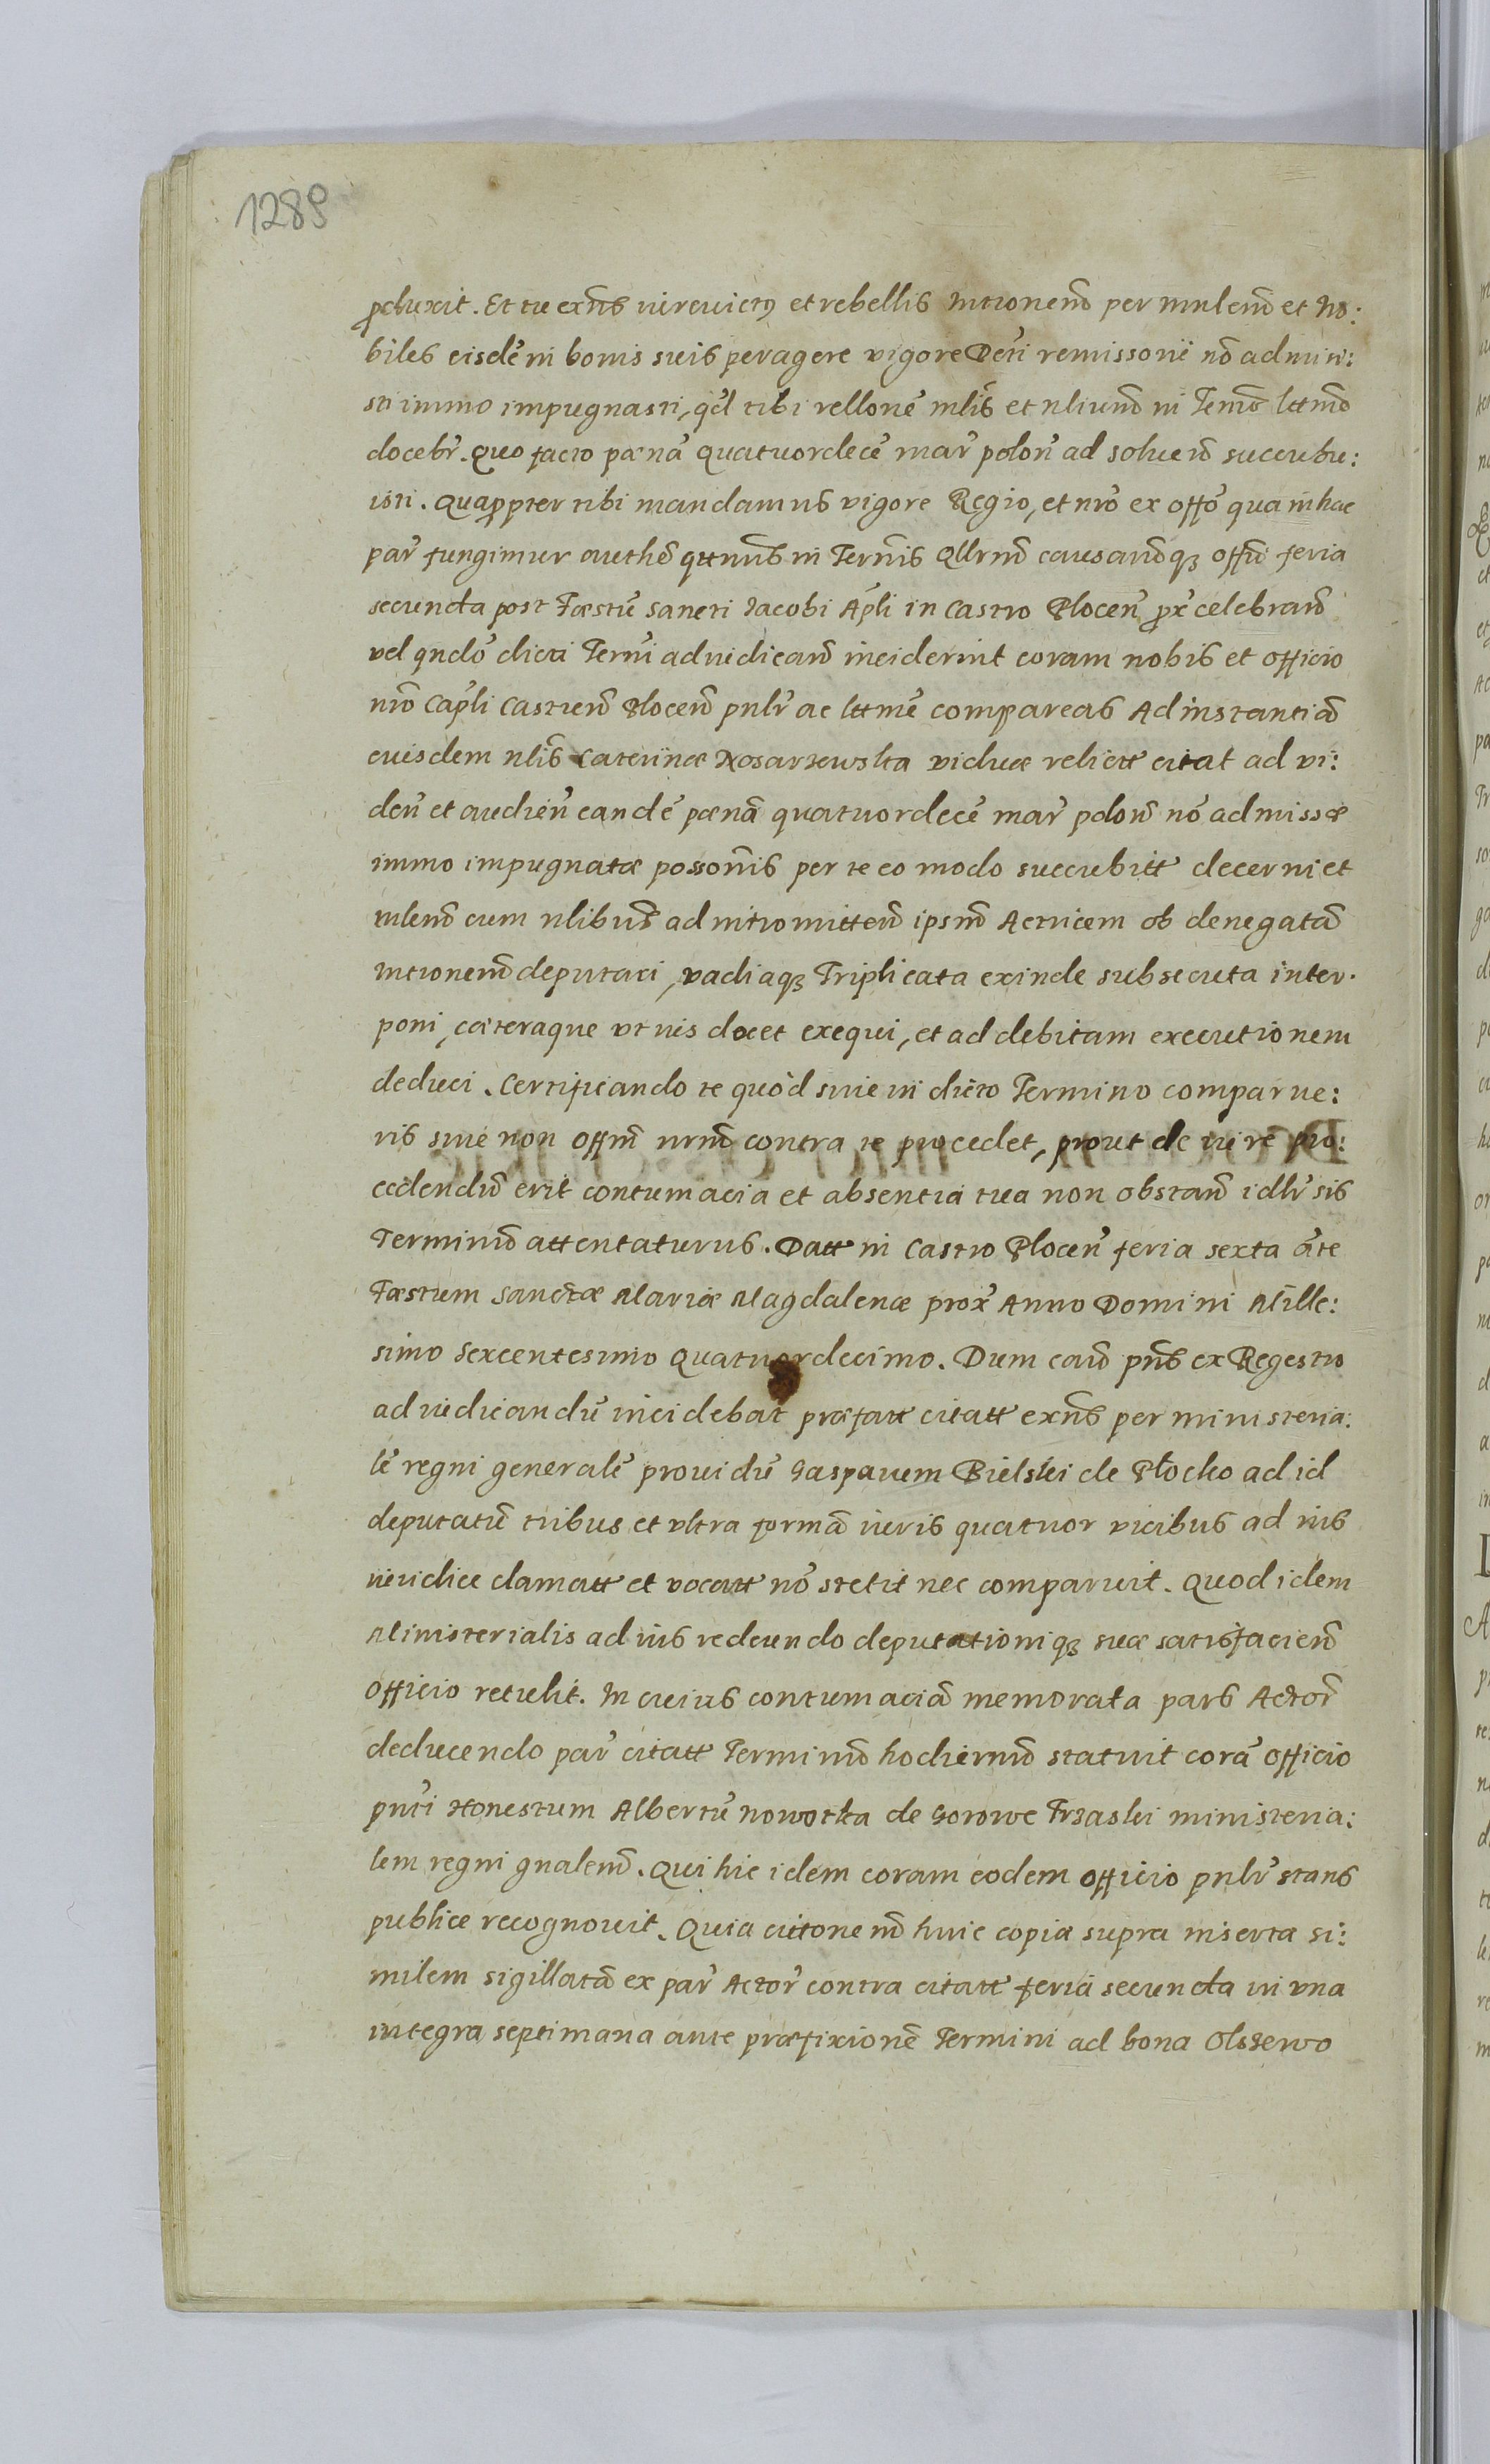 1289
ꝓduxit. Et tu exñs iurevictꝰ et rebellis Intronem̃ per mnlem̃ et No:
biles eisdē in bonis suis peragere vigore Decti remissorii nō admisi:
sti immo impugnasti, qd̃ tibi rellonē mlis̃ et nlium̃ in Term̃o lttm̃o
docebr̃. Quo facto pœnā quatuordecē mar̃ polon̄ ad soluen̄ succubu:
isti. Quaꝓpter tibi mandamus vigore Regio, et nr̃o ex offõ qua in hac
par̃ fungimur authẽ qttnus̃ in Term̃is Qllrm̃ causarum̃qꝫ offii̇ feria
secunda post Fœstū Sancti Iacobi Apl̃i in Castro Plocen̄ ꝓx̃ celebran̄
vel qndõ dicti Term̃i adiudican̄ inciderint coram nobis et officio
nr̃o Capl̃i Castren̄ Plocen̄ pnlr̃ ac lttmē compareas Ad instantiā
eiusdem nlis̃ Caterinæ Kosarzewska viduæ relictt citat ad vi:
den̄ et audien̄ eandē pœnā quatuordecē mar̃ polon̄ nō admissæ
immo impugnatæ possonis̃ per te eo modo succubitt decerni et
mlem̃ cum nlibus̃ ad intromitten̄ ipsm̃ Actricem ob denegatā
Intronem̃ deputari, vadiaqꝫ Triplicata exinde subsecuta inter.
poni, cæteraque vt ius docet exequi, et ad debitam executionem
deduci. Certificando te quòd siue in dicto Termino comparue:
ris siue non offm̃ nrm̃ contra te procedet, prout de iure pro:
cedendū erit contumacia et absentia tua non obstan̄ idlr̃ sis
Terminū attentaturus. Datt in Castro Plocen̄ feria sexta āte
Fœstum Sanctæ Mariæ Magdalenæ prox̃ Anno Domini Mille:
simo Sexcentesimo Quatuordecimo. Dum cau̇̄ pñs ex Regestro
adiudicandū incidebat præfatt citatt exñs per ministeria:
lē regni generalē prouidū Gasparem Bielski de Płocko ad id
deputatū tribus et vltra formā iuris quatuor vicibus ad ius
iuridice clamatt et vocatt nō stetit nec comparuit. Quod idem
Ministerialis ad ius redeundo deputationiqꝫ suæ satisfacien̄
officio retulit. In cuius contumaciā memorata pars Actor̃
deducendo par̃ citatt Terminū hodiernū statuit corā officio
pnti Honestum Albertū nowotka de Gorowe Trzaski ministeria:
lem regni gnalem̃. Qui hic idem coram eodem officio pnlr̃ stans
publice recognouit. Quia cittonem̃ huic copia supra inserta si:
milem sigillatā ex par̃ Actor̃ contra citatt feria secunda in vna
integra septimana ante præfixionē Termini ad bona Olszewo